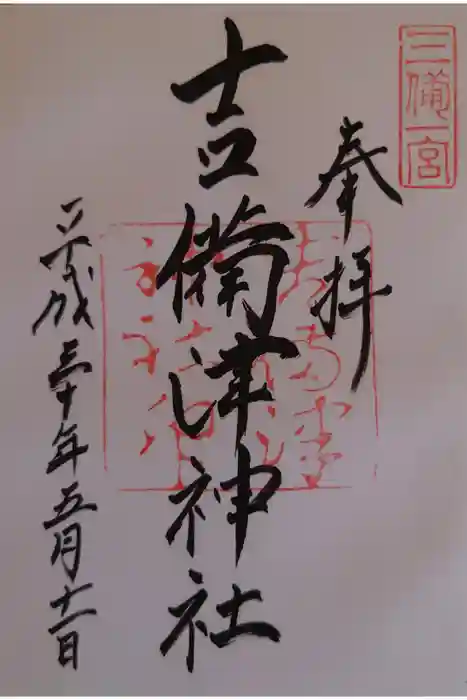 三備一宮
奉拝
吉備津神社
平成三十年五月十一日